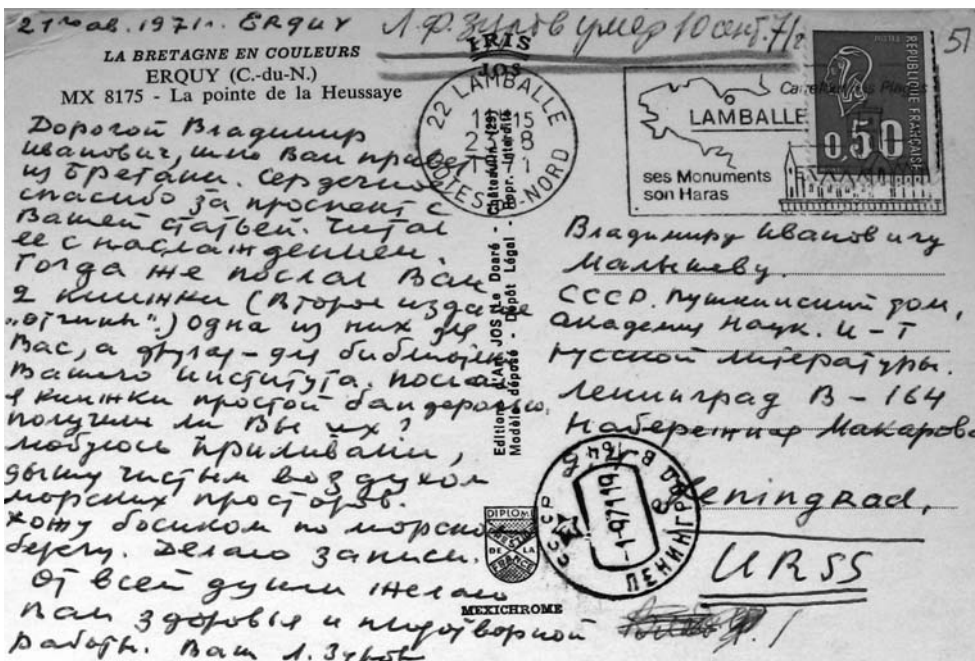 21 авг. 1971 г. ERQUY
Л.Ф. Зуров умер 10 сент. 71 г.
51
LA BRETAGNE EN COULEURS
ERQUY (C.-du-N.)
MX 8175 - La pointe de la Heussaye
Дорогой Владимир
Иванович, шлю Вам привет
из Бретани. Сердечное
спасибо за проспект с
Вашей статьей. Читал
ее с наслаждением.
Тогда же послал Вам
2 книжки (второе издание
„Отчины“.) Одна из них для
Вас, а другая – для библиотеки
Вашего института. Послал
я книжки простой бандеролью.
Получили ли Вы их?
Любуюсь приливами,
дышу чистым воздухом
морских просторов.
Хожу босиком по морскому
берегу. Делаю записи.
От всей души желаю
Вам здоровья и плодотворной
работы. Ваш Л. Зуров
IRIS
JOS
Editions d'Art JOS Le Doaré - Châteaulin (29)
Modèle déposé - Dépôt Légal - Repr. Interdite
DIPLOME
PRESTIGE
DE LA
FRANCE
MEXICHROME
22 LAMBALLE
COTES-DU-NORD
LAMBALLE
ses Monuments
son Haras
REPUBLIQUE FRANÇAISE
POSTES
0,50
Владимиру Ивановичу
Малышеву.
СССР. Пушкинский дом,
Академия Наук. И-Т
Русской литературы.
Ленинград В-164
Набережная Макарова
Leningrad,
URSS
СССР
ЛЕНИНГРАД В-164